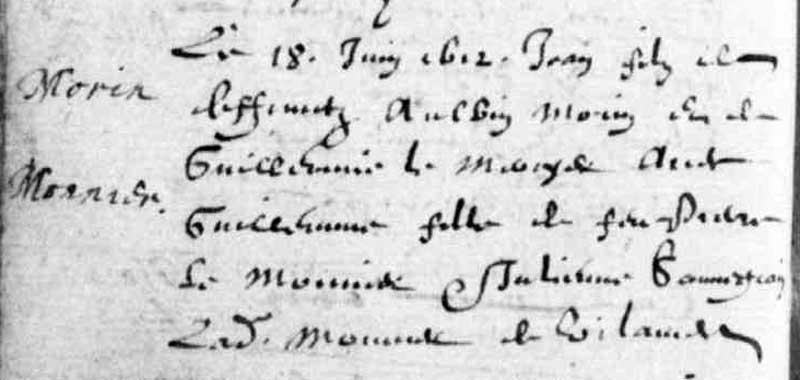 Morin
Monnier.
Le 18. Juin 1612. Jean filz de
deffunctz Aulbin Morin et de
Guillemine le Moyne Avec
Guillemine fille de feu Pierre
Le Monnier Julienne
Lad. Monnier de